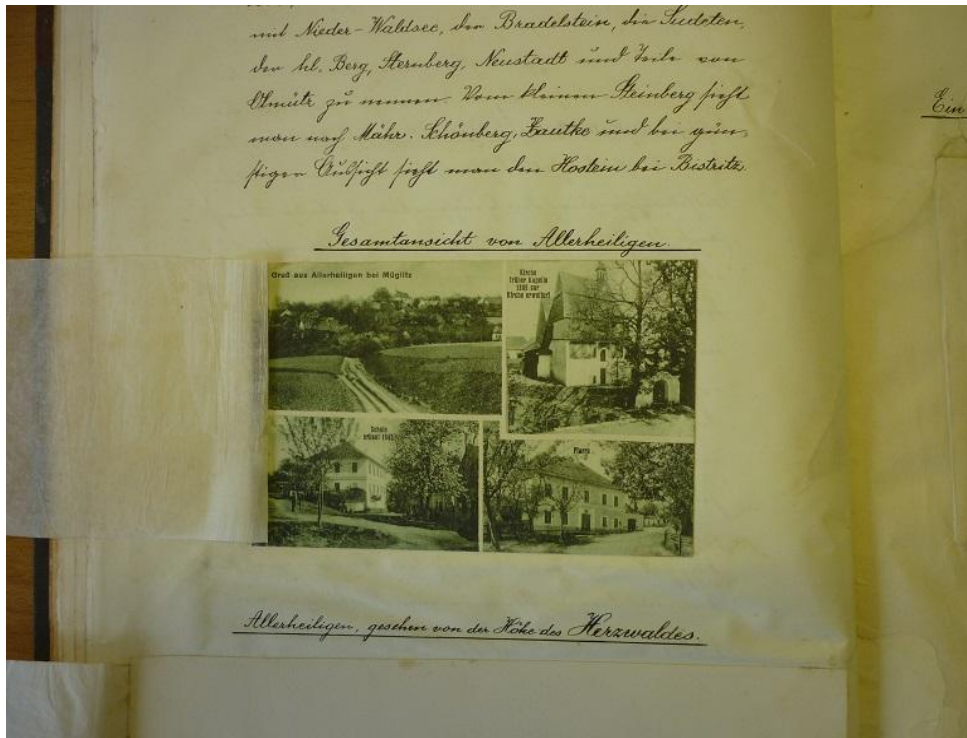 mit Nieder-Waldsee, den Bradelstein, die Sudeten,
den hl. Berg, Sternberg, Neustadt und Teile von
Olmütz zu nennen. Vom kleinen Steinberg sieht
man nach Mähr. Schönberg, Zautke und bei gün-
stiger Aussicht sieht man den Hostein bei Bistritz.
Ein
Gesamtansicht von Allerheiligen.
Gruß aus Allerheiligen bei Müglitz
Kirche
früher Kapelle
zur
Kirche erweitert
Schule
erbaut
Pfarre
Allerheiligen, gesehen von der Höhe des Herzwaldes.